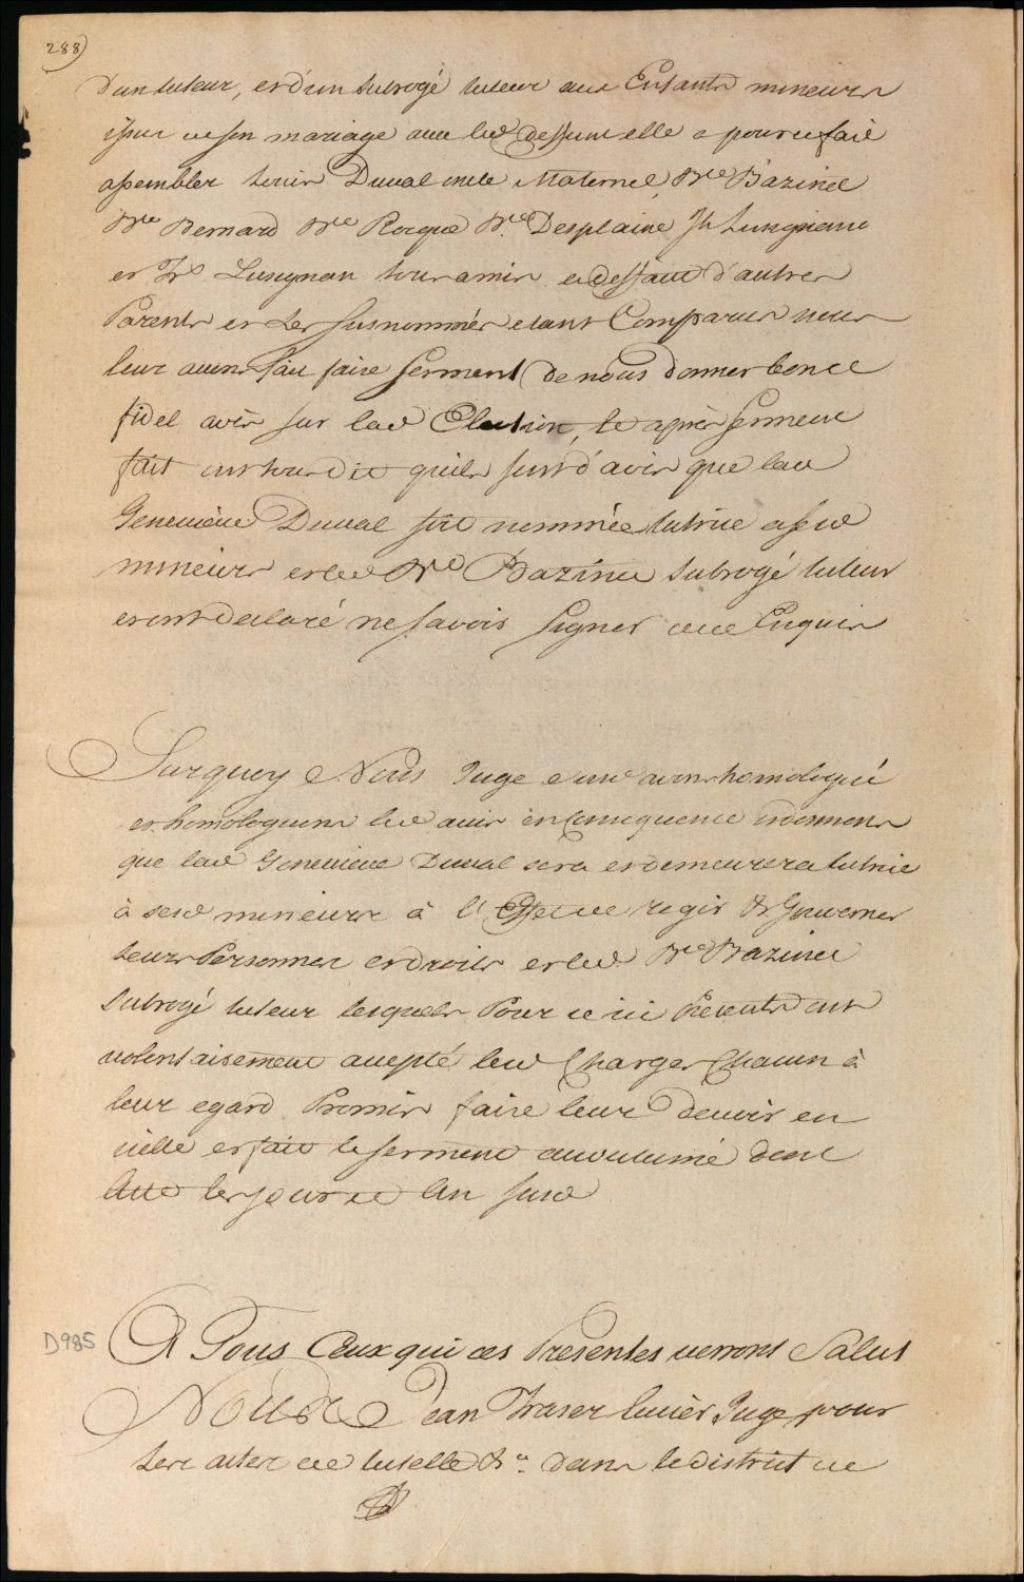 288)
d'un tuteur, et d'un subrogé tuteur aux Enfants mineurs
issus de son mariage avec led deffunt elle a pour ce fait
assembler Duval oncle Maternel, Bte Bazinet
Bte Bernard Bte Rocque Bte Desplaine Jh Lusignant
et Frs Lusignan tous amis a deffaut d'autres
Parents et Les susnommés etant Comparus nous
leur avons fait faire serment de nous donner bon et
fidel avis sur lad Election, le après serment
fait ont tous dit quils sont d'avis que lad
Genevieve Duval soit nommée tutrice a sesd
mineurs et led Bte Bazinet subrogé tuteur
et ont declaré ne savoir signer de ce Enquis
Surquoy Nous Juge avons homologué
et homologuons led avis en Consequence ordonnons
que lad Genevieve Duval sera et demeurera tutrice
à sesd mineurs à l'Effet de regir & Gouverner
leurs Personnes et droits et led Bte Bazinet
subrogé tuteur lesquels Pour ce ici Présents ont
volontairement accepté lesd Charges Chacun à
leur egard Promis faire leur devoir en
icelle et fait le serment accoutumé dont
Acte les jour et an susd
D985
A Tous Ceux qui ces Présentes verront Salut
Nous Jean Fraser Ecuier Juge pour
les actes de tutelle &a. dans le district de